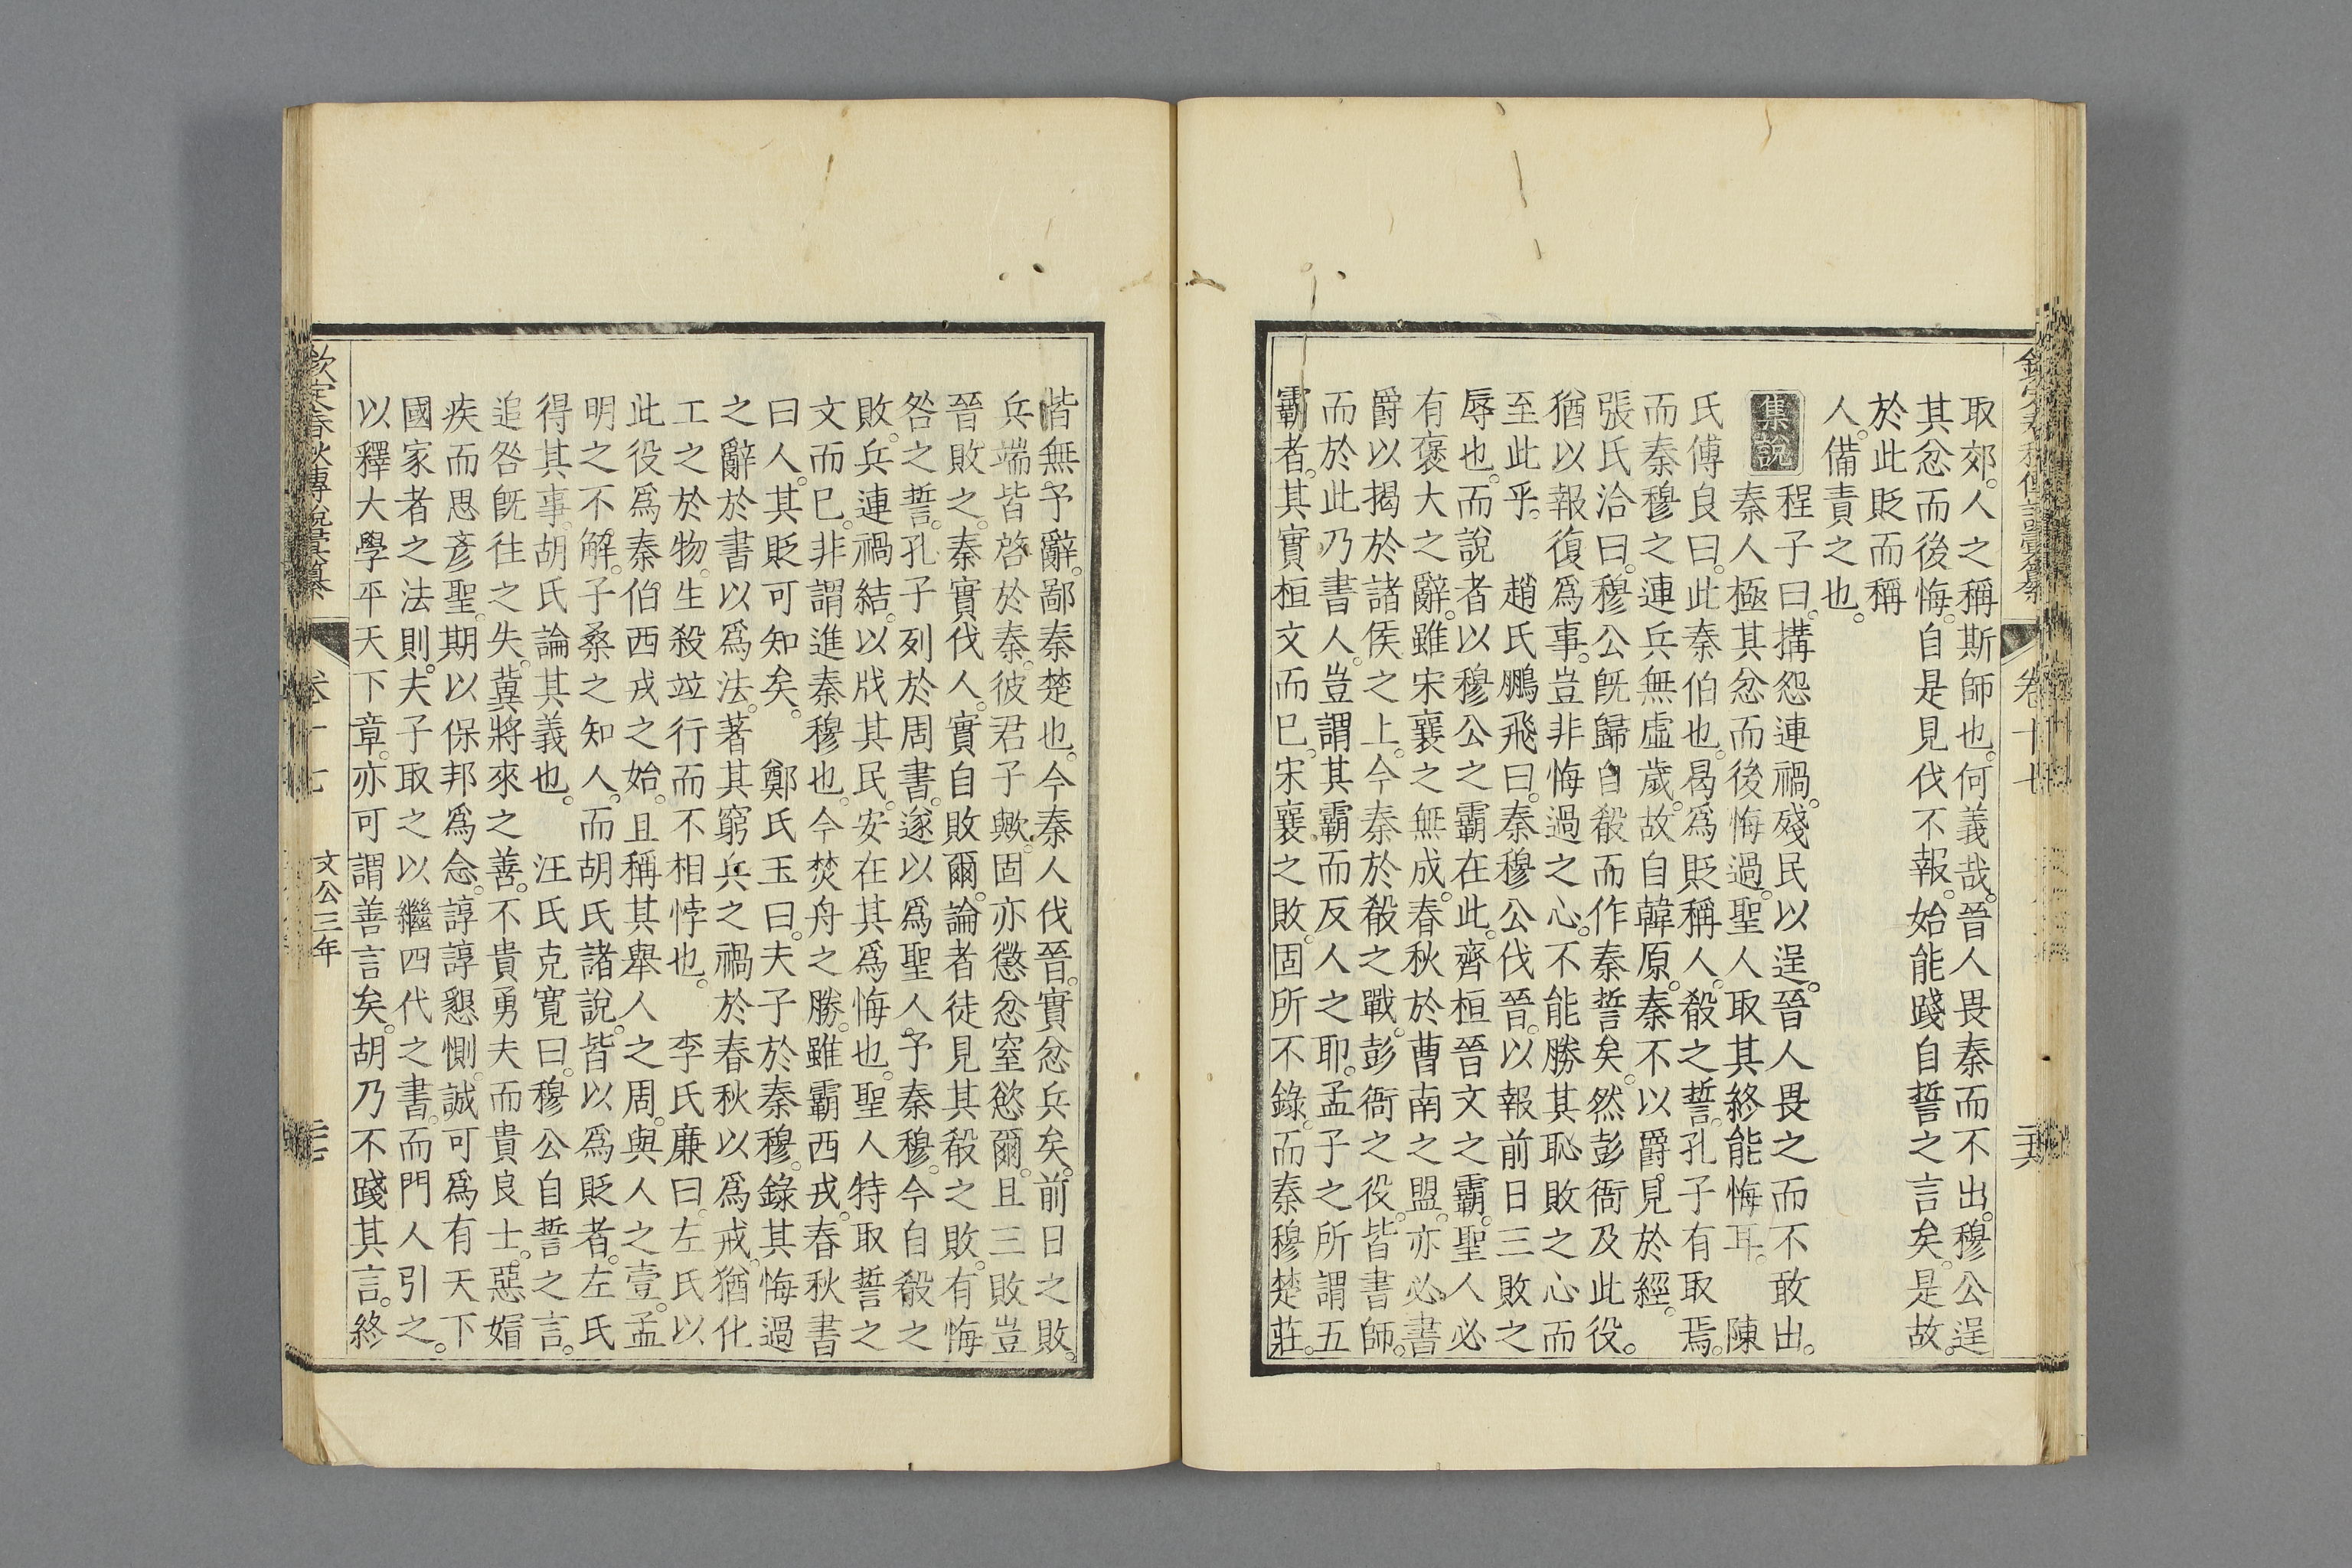 取郊。人之稱斯師也。何義哉。晉人畏秦而不出。穆公逞
其忿而後悔。自是見伐不報。始能踐自誓之言矣。是故
於此貶而稱
人。備責之也。
集說
程子曰。搆怨連禍。殘民以逞。晉人畏之而不敢出。
秦人極其忿而後悔過。聖人取其終能悔耳。 陳
氏傅良曰。此秦伯也。曷爲貶稱人。殽之誓。孔子有取焉。
而秦穆之連兵無虛歲。故自韓原。秦不以爵見於經。
張氏洽曰。穆公旣歸自殽而作秦誓矣。然彭衙及此役。
猶以報復爲事。豈非悔過之心。不能勝其恥敗之心而
至此乎。 趙氏鵬飛曰。秦穆公伐晉。以報前日三敗之
辱也。而說者以穆公之霸在此。齊桓晉文之霸。聖人必
有褒大之辭。雖宋襄之無成。春秋於曹南之盟。亦必書
爵以揭於諸侯之上。今秦於殽之戰。彭衙之役。皆書師。
而於此乃書人。豈謂其霸而反人之耶。孟子之所謂五
霸者。其實桓文而已。宋襄之敗。固所不錄。而秦穆楚莊。
欽定春秋傳說彙纂
卷十七
皆無予辭。鄙秦楚也。今秦人伐晉。實忿兵矣。前日之敗。
兵端皆啓於秦。彼君子歟。固亦懲忿窒慾爾。且三敗豈
晉敗之。秦實伐人。實自敗爾。論者徒見其殽之敗。有悔
咎之誓。孔子列於周書。遂以爲聖人予秦穆。今自殽之
敗。兵連禍結。以戕其民。安在其爲悔也。聖人特取誓之
文而已。非謂進秦穆也。今焚舟之勝。雖霸西戎。春秋書
曰人。其貶可知矣。 鄭氏玉曰。夫子於秦穆。錄其悔過
之辭於書以爲法。著其窮兵之禍於春秋以爲戒。猶化
工之於物。生殺竝行而不相悖也。 李氏廉曰。左氏以
此役爲秦伯西戎之始。且稱其舉人之周。與人之壹。孟
明之不解。子桑之知人。而胡氏諸說。皆以爲貶者。左氏
得其事。胡氏論其義也。 汪氏克寬曰。穆公自誓之言。
追咎旣往之失。冀將來之善。不貴勇夫而貴良士。惡媢
疾而思彥聖。期以保邦爲念。諄諄懇惻。誠可爲有天下
國家者之法則。夫子取之以繼四代之書。而門人引之。
以釋大學平天下章。亦可謂善言矣。胡乃不踐其言。終
欽定春秋傳說彙纂
卷十七
文公三年